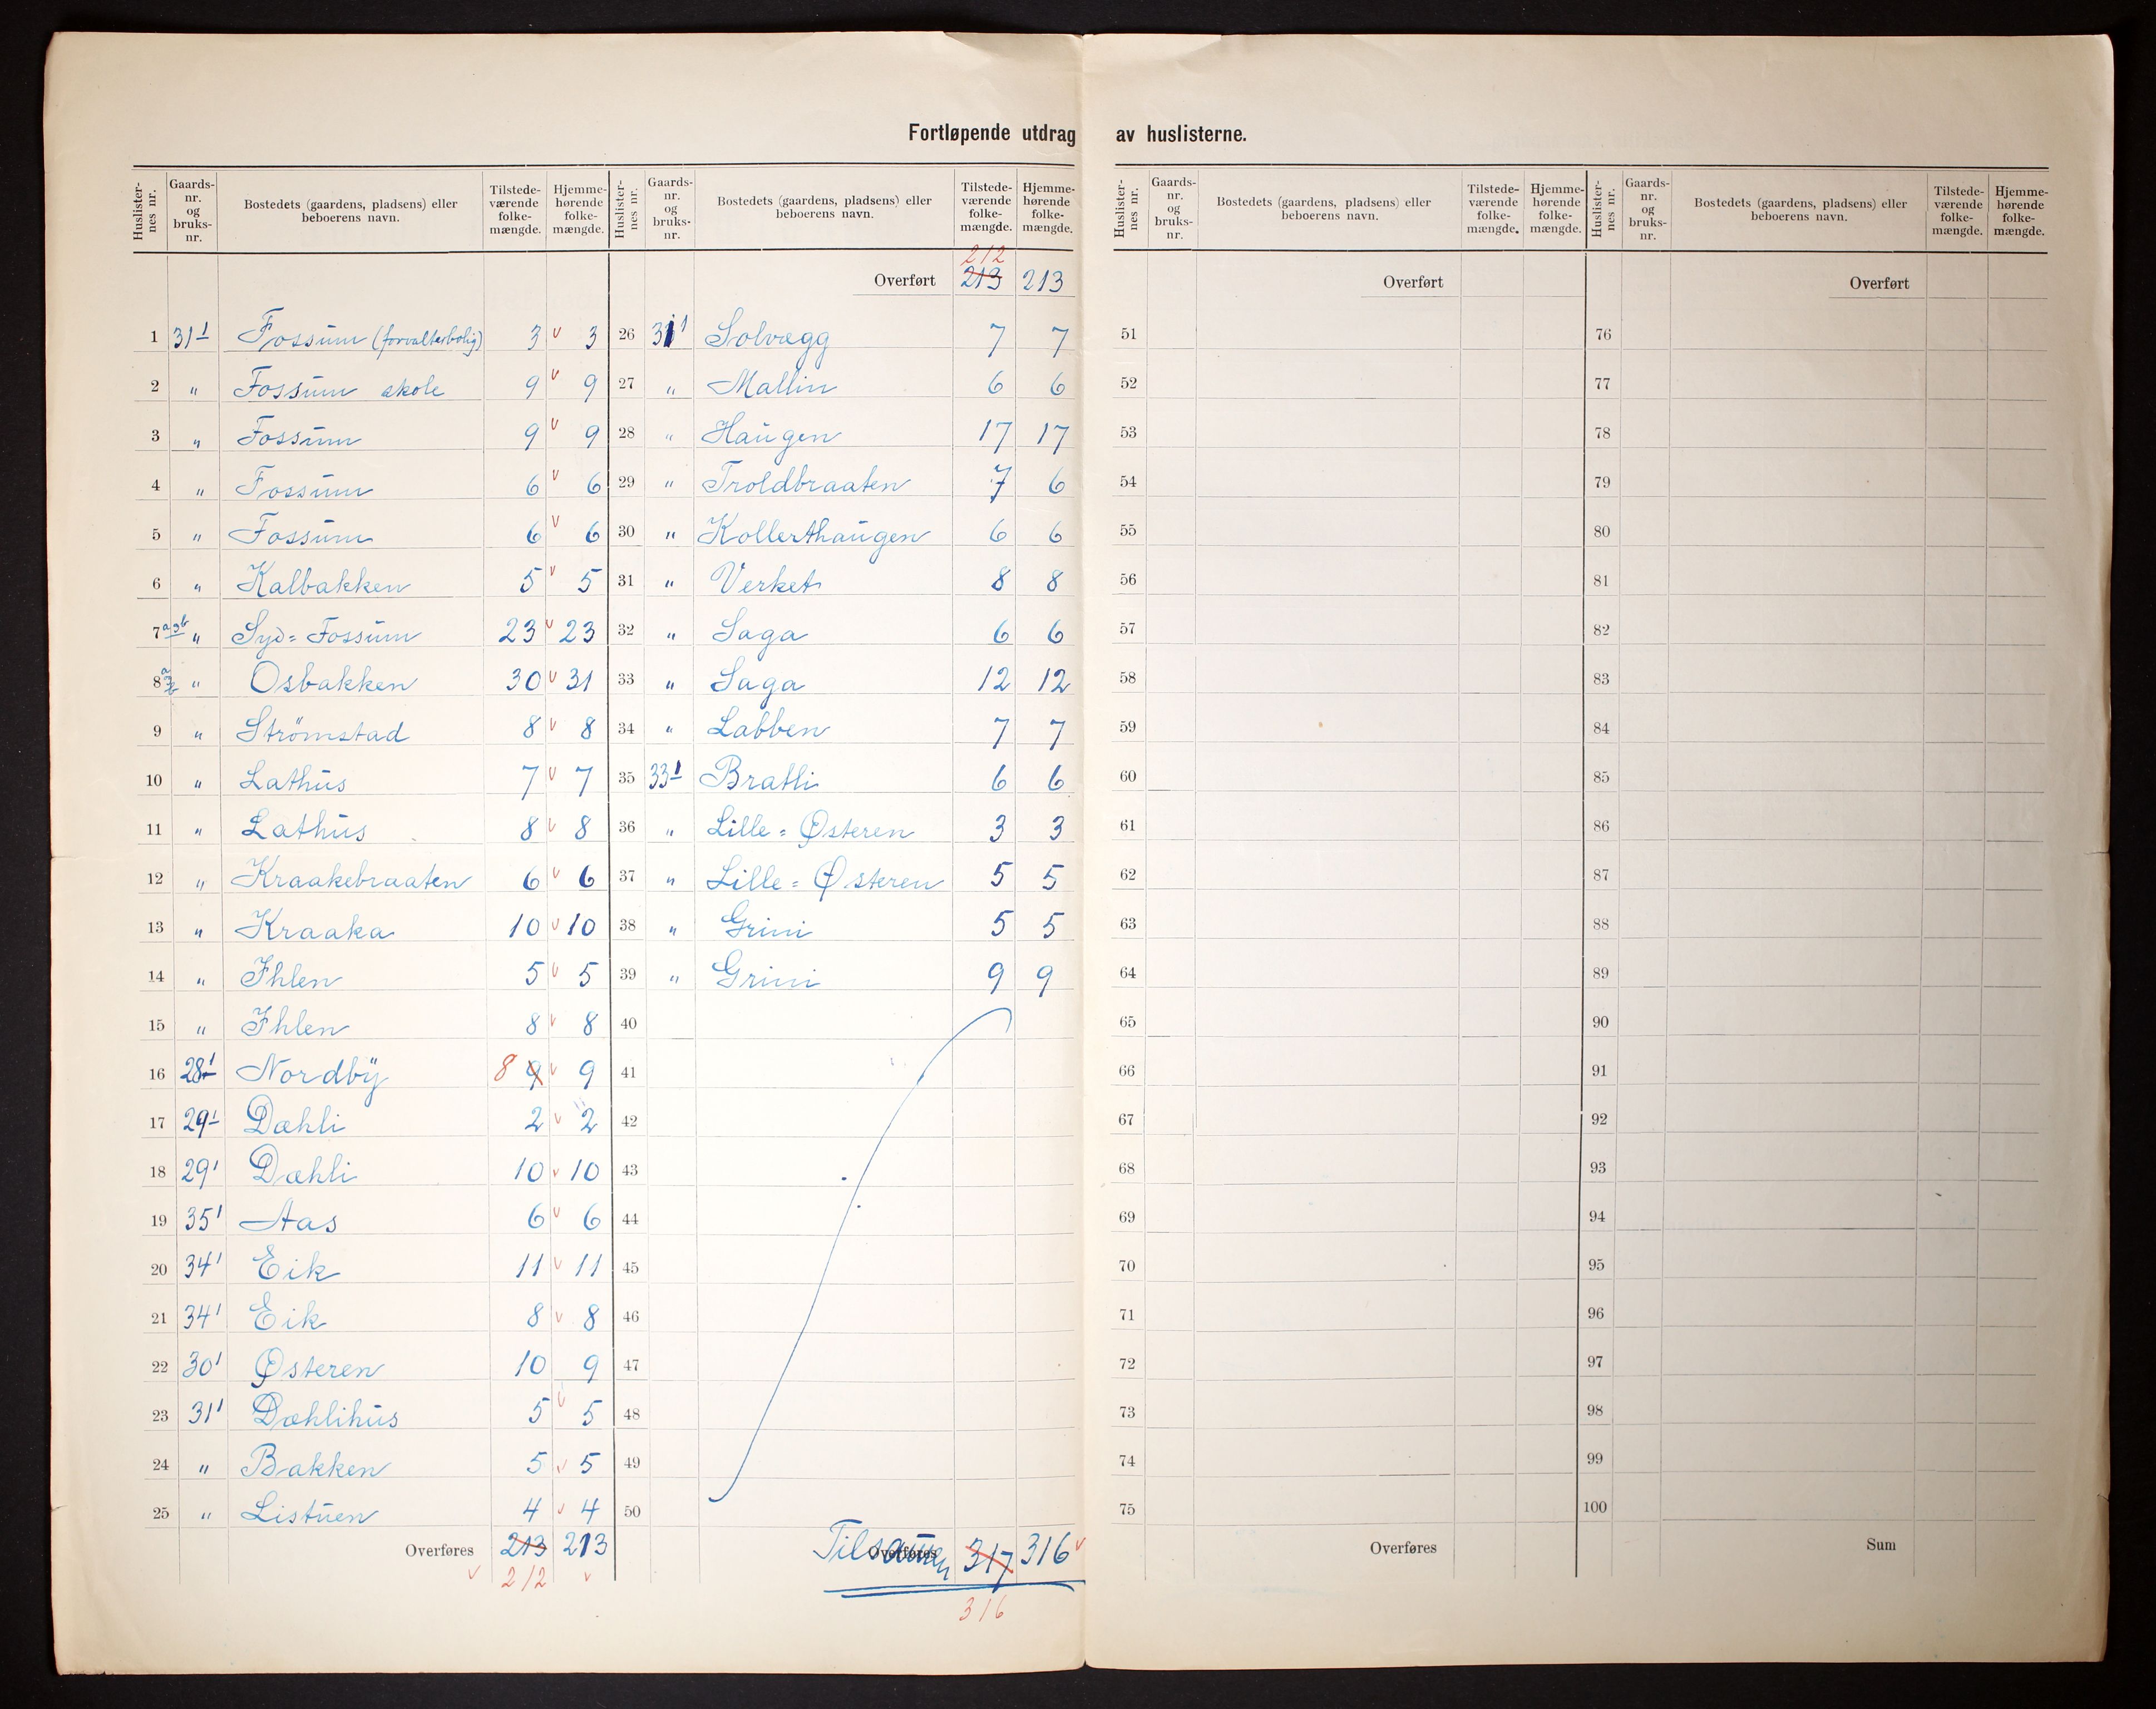 Fortløpende utdrag av huslisterne.
Huslisternes nr. Gaards-nr. og bruks-nr. Bostedets (gaardens, pladsens) eller beboerens navn. Tilstede-værende folke-mængde. Hjemme-hørende folke-mængde.
1 31¹ Fossum (forvalterbolig) 3 v 3
2 " Fossum skole 9 v 9
3 " Fossum 9 v 9
4 " Fossum 6 v 6
5 " Fossum 6 v 6
6 " Kalbakken 5 v 5
7 a g b " Syd=Fossum 23 v 23
8 " Osbakken 30 v 31
9 " Strömstad 8 v 8
10 " Lathus 7 v 7
11 " Lathus 8 v 8
12 " Kraakebraaten 6 v 6
13 " Kraaka 10 v 10
14 " Ihlen 5 v 5
15 " Ihlen 8 v 8
16 28¹ Nordby 8 9 v 9
17 29¹ Dæhli 2 v 2
18 29¹ Dæhli 10 v 10
19 35¹ Aas 6 v 6
20 34¹ Eik 11 v 11
21 34¹ Eik 8 v 8
22 30¹ Østeren 10 9
23 31¹ Dæhlihus 5 v 5
24 " Bakken 5 v 5
25 " Listuen 4 v 4
Overføres 213 213
v 212 v
Huslisternes nr. Gaards-nr. og bruks-nr. Bostedets (gaardens, pladsens) eller beboerens navn. Tilstede-værende folke-mængde. Hjemme-hørende folke-mængde.
212
Overført 213 213
26 31¹ Solvegg 7 7
27 " Mallin 6 6
28 " Haugen 17 17
29 " Troldbraaten 7 6
30 " Kollerthaugen 6 6
31 " Verket 8 8
32 " Saga 6 6
33 " Saga 12 12
34 " Labben 7 7
35 33¹ Bratli 6 6
36 " Lille=Østeren 3 3
37 " Lille=Østeren 5 5
38 " Grini 5 5
39 " Grini 9 9
40
41
42
43
44
45
46
47
48
49
50
Overføres Tilsamen 317 316 v
316
Huslisternes nr. Gaards-nr. og bruks-nr. Bostedets (gaardens, pladsens) eller beboerens navn. Tilstede-værende folke-mængde. Hjemme-hørende folke-mængde.
Overført
51
52
53
54
55
56
57
58
59
60
61
62
63
64
65
66
67
68
69
70
71
72
73
74
75
Overføres
Huslisternes nr. Gaards-nr. og bruks-nr. Bostedets (gaardens, pladsens) eller beboerens navn. Tilstede-værende folke-mængde. Hjemme-hørende folke-mængde.
Overført
76
77
78
79
80
81
82
83
84
85
86
87
88
89
90
91
92
93
94
95
96
97
98
99
100
Sum